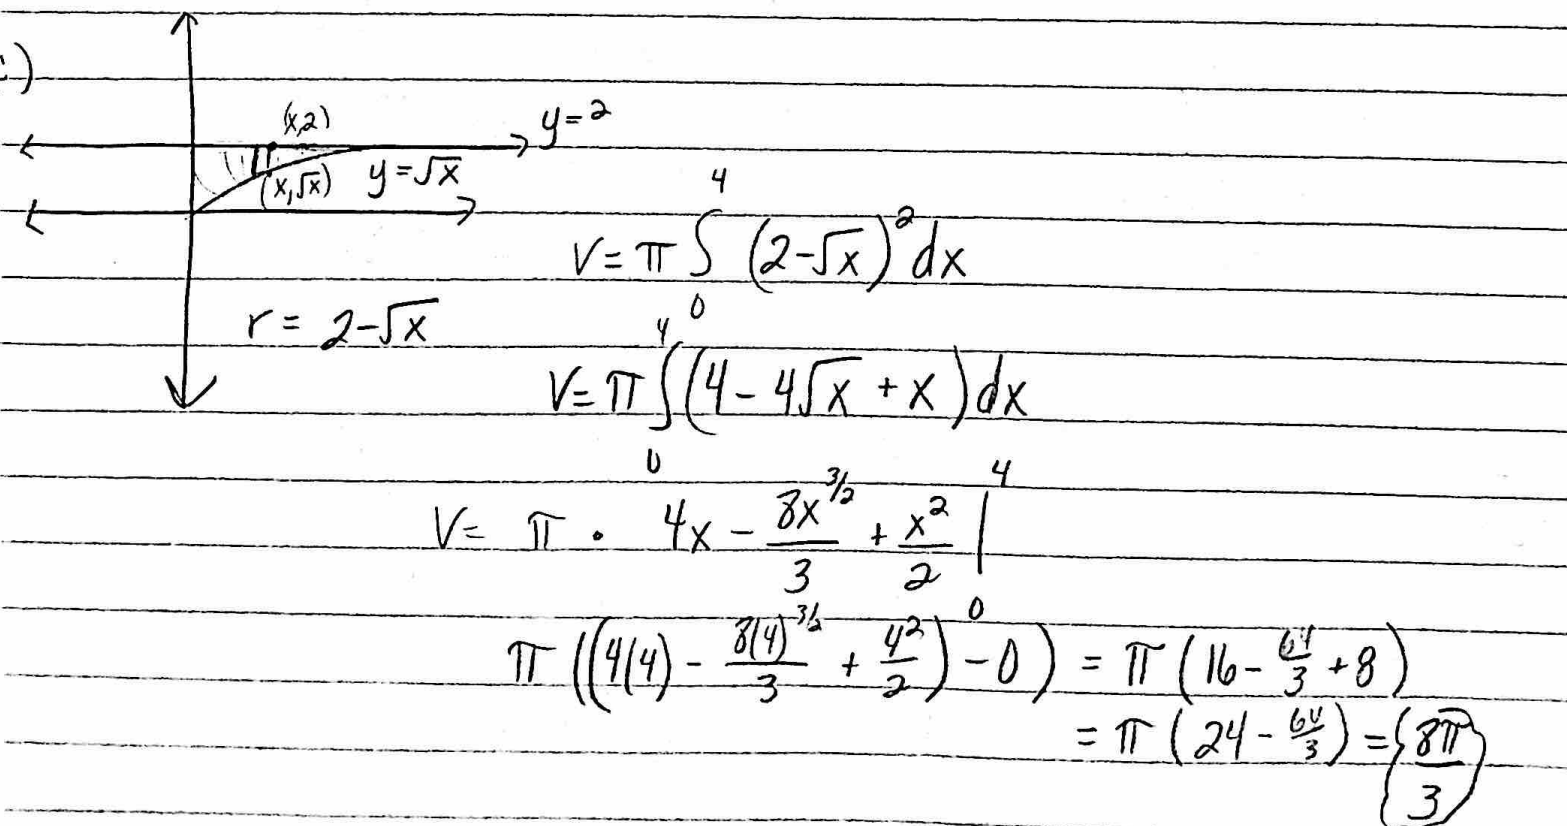 :)
(x,2)
y=2
(x,√x) y=√x
V= π ∫₀⁴ (2-√x)² dx
r= 2-√x
V= π ∫₀⁴ (4 - 4√x + x) dx
V= π · 4x - 8x^(3/2)/3 + x²/2 |₀⁴
π ((4(4) - 8(4)^(3/2)/3 + 4²/2) - 0) = π (16 - 64/3 + 8)
= π (24 - 64/3) = 8π/3